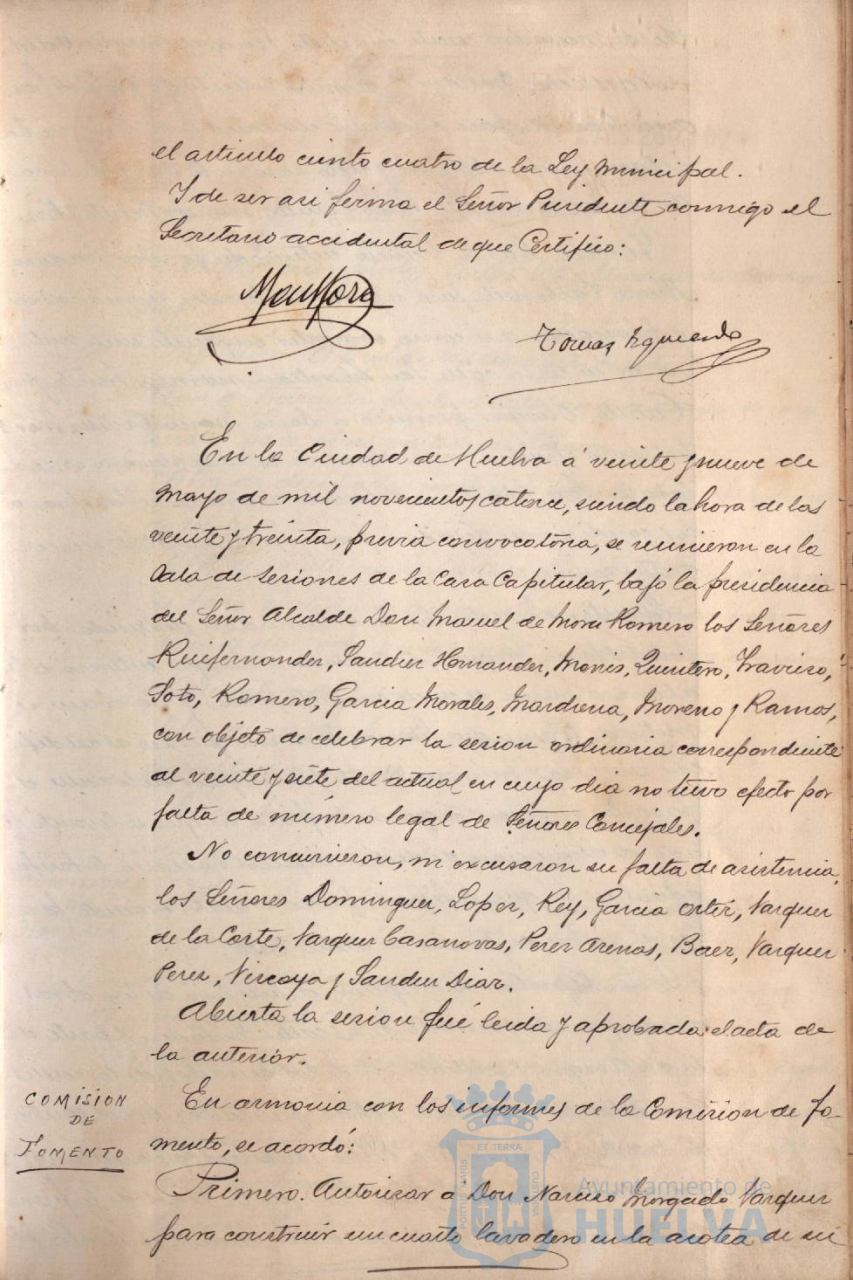 el articulo ciento cuatro de la Ley Municipal.
Y de ser asi firma el Señor Presidente conmigo el
Secretario accidental de que Certifico:
Tomas Izquierdo
En la Ciudad de Huelva á veinte y nueve de
Mayo de mil novecientos catorce, siendo la hora de las
veinte y treinta, previa convocatoria, se reunieron en la
Sala de sesiones de la Casa Capitular, bajo la presidencia
del Señor Alcalde Don Manuel de Mora Romero los Señores
Ruifernandez, Sanchez Hernandez, Monis, Quintero, Travieso,
Soto, Romero, Garcia Morales, Marchena, Moreno y Ramos,
con objeto de celebrar la sesion ordinaria correspondiente
al veinte y siete del actual en cuyo dia no tuvo efecto por
falta de número legal de Señores Concejales.
No concurrieron, ni excusaron su falta de asistencia,
los Señores Dominguez, Lopez, Rey, Garcia Ortiz, Vazquez
de la Corte, Vazquez Casanovas, Perez Arenas, Baez, Vazquez
Perez, Vizcaya y Sanchez Diaz.
Abierta la sesion fué leida y aprobada el acta de
la anterior.
COMISION
DE
FOMENTO
En armonia con los informes de la Comision de Fo-
mento, se acordó:
Primero. Autorizar a Don Narciso Morgado Vazquez
para construir un cuarto lavadero en la azotea de su
Ayuntamiento de
HUELVA